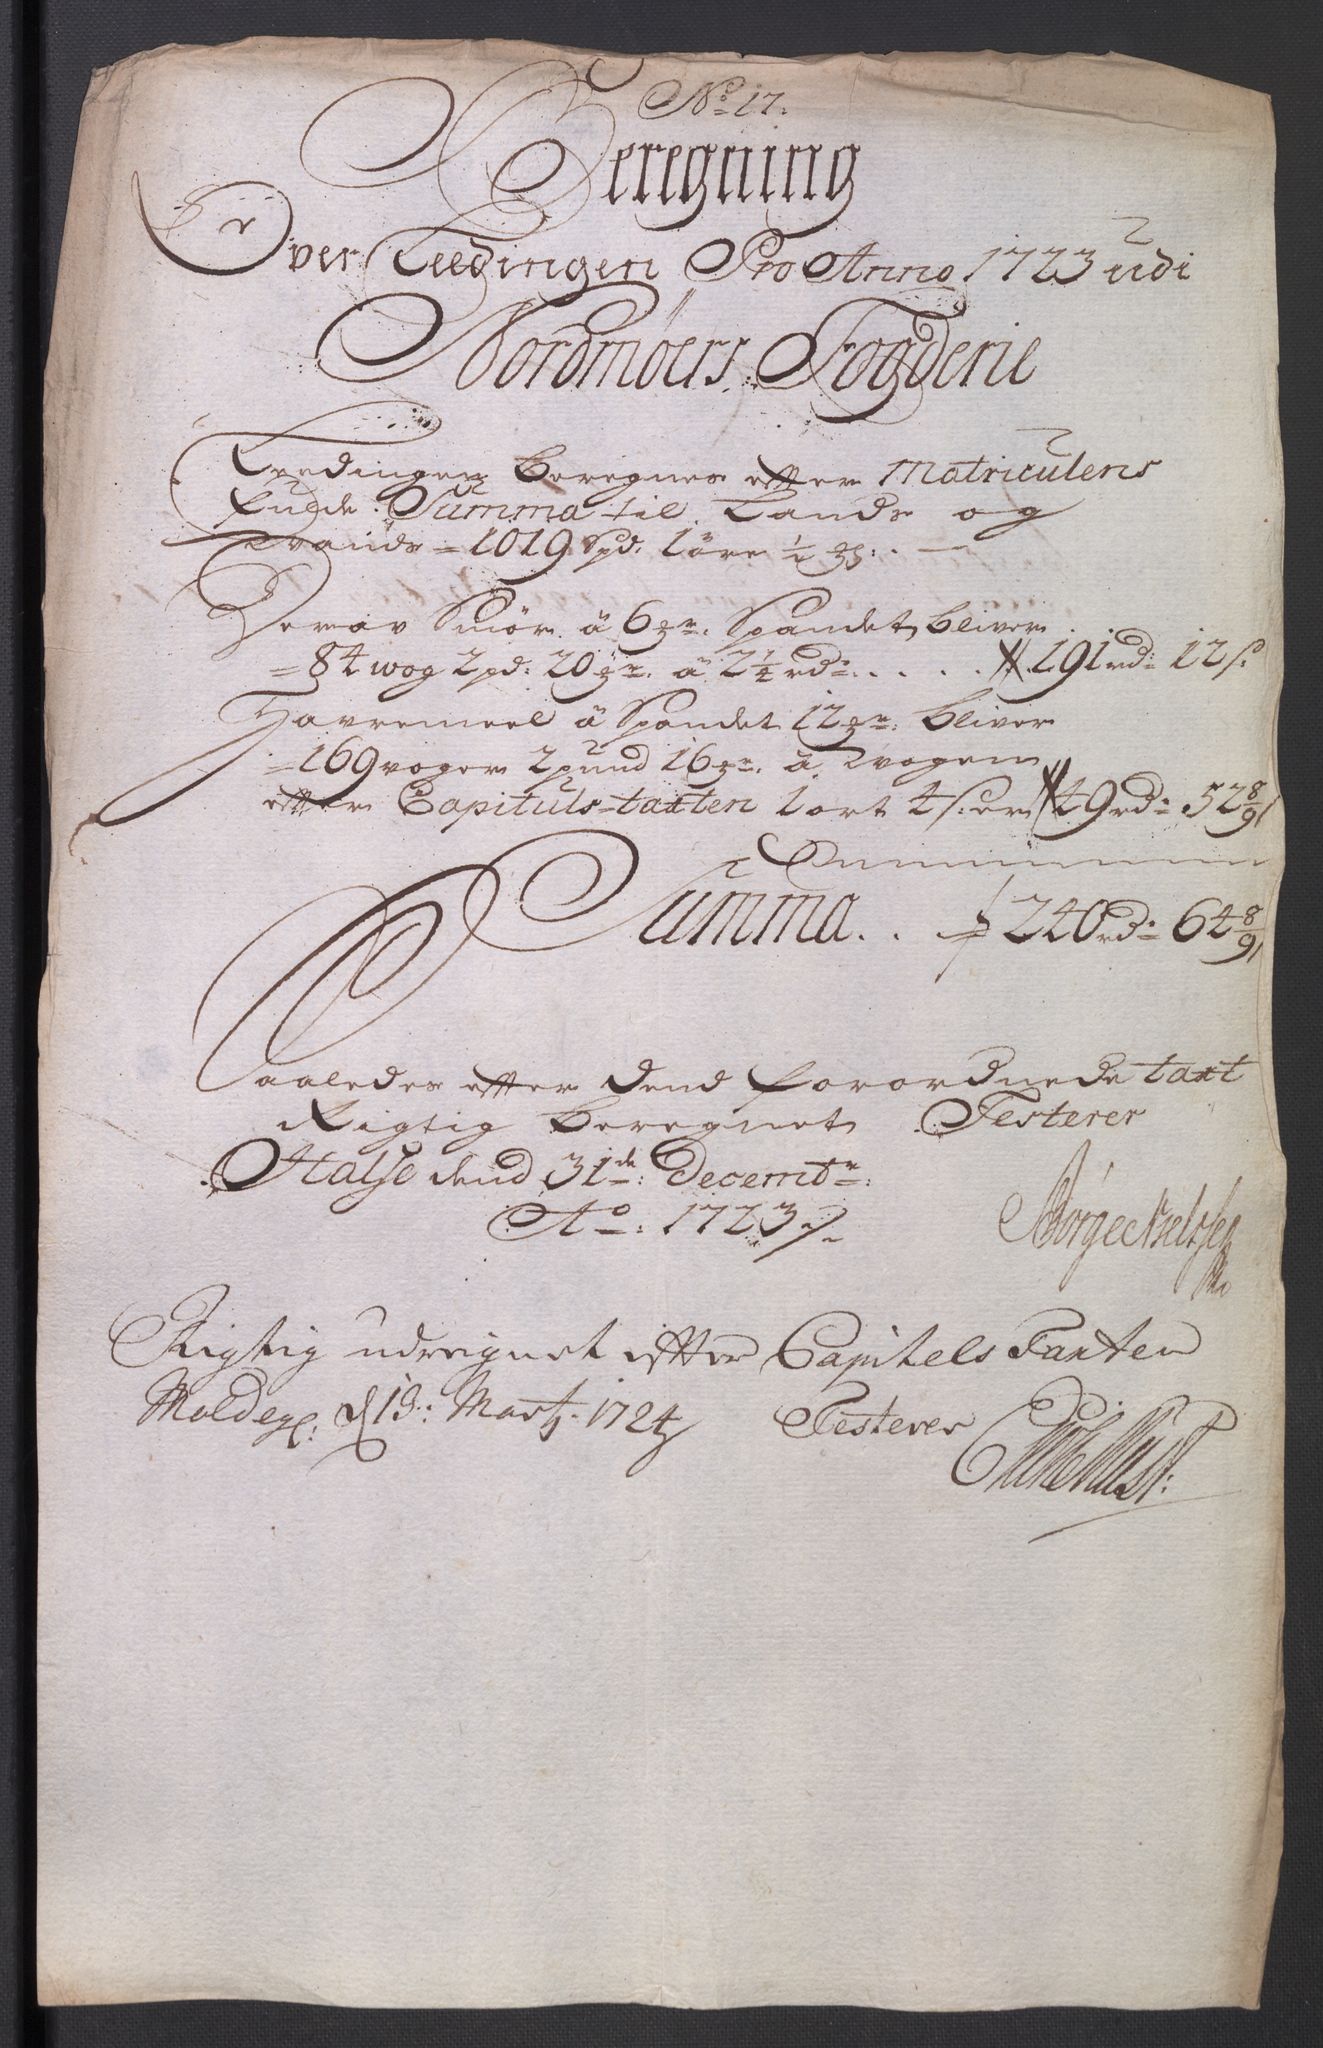 No 17.
Beregning
Over Leedingen Pro Anno 1723 udi
Nordmöers Fogderie
Leedingen beregnes efter Matriculens
fulde Summa til Lands og
Vands = 1019 Spd: 1 öre ½
Derav Smör â 6 Spandet bliver
= 84 wog 2 pd: 20 â 2¼ rd: . . . . 191 rd: 12 s.
Havremeel â Spandet 12 bliver
= 169 voger 2 pund 16 â vogen
efter Capituls-taxten 1 ort 4 s: er 49 rd: 52 8/9
Summa . . 240 rd: 64 8/9
Saaledes efter dend forordnede taxt
Rigtig beregnet Testerer
Halse dend 31de: Decembr:
Ao: 1723
Börge Nielsen
Rigtig udreignet efter Capitels Taxten
Molde d 19: Marty 1724 Testerer